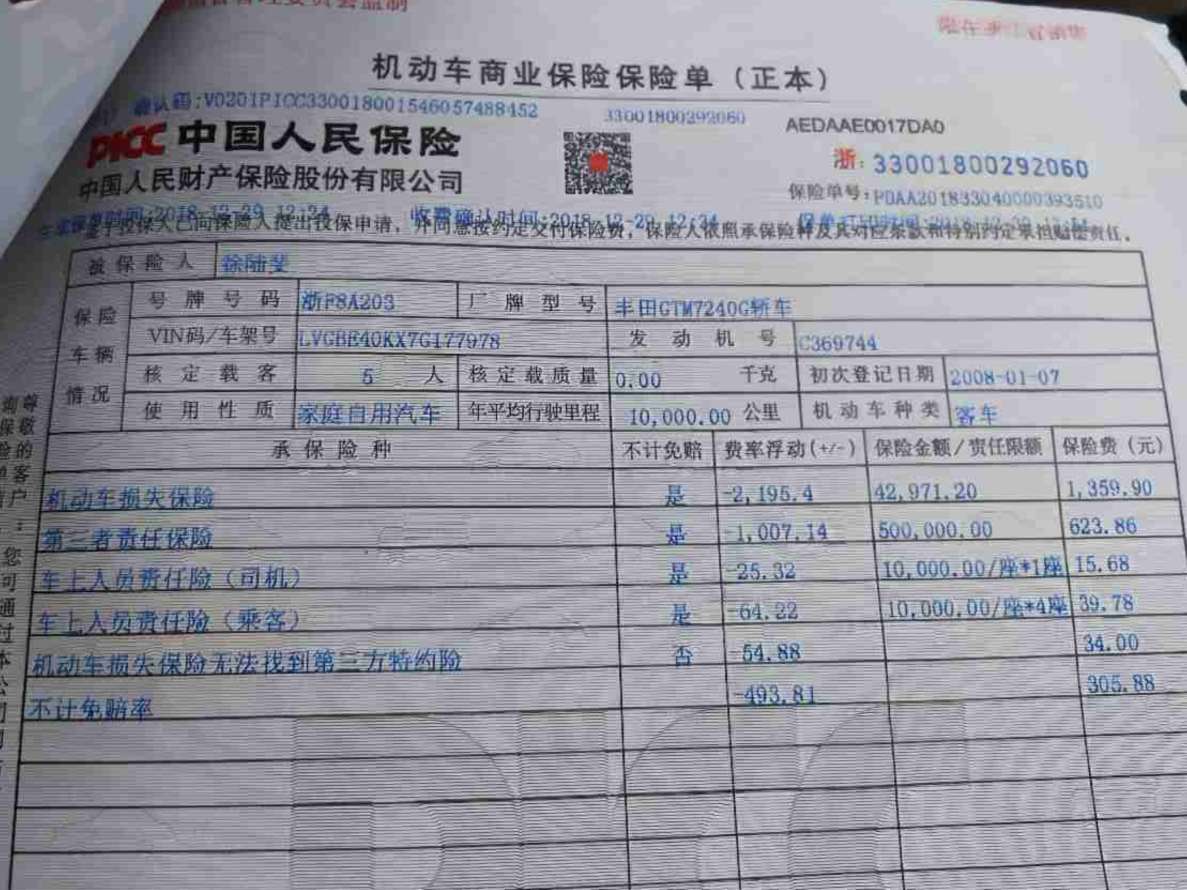 限在浙江省销售
机动车商业保险保险单（正本）
确认码:V0201PICC330018001546057488452 33001800292060 AEDAAE0017DA0
PICC 中国人民保险
浙: 33001800292060
中国人民财产保险股份有限公司
保险单号: PDAA201833040000393510
生成保单时间:2018-12-29 12:24 收费确认时间:2018-12-29 12:24
鉴于投保人已向保险人提出投保申请，并同意按约定交付保险费，保险人依照承保险种及其对应条款和特别约定承担赔偿责任。
被保险人 徐陆斐
保险车辆情况
号牌号码 浙F8A203 厂牌型号 丰田GTM7240G轿车
VIN码/车架号 LVGBE40KX7G177978 发动机号 C369744
核定载客 5 人 核定载质量 0.00 千克 初次登记日期 2008-01-07
使用性质 家庭自用汽车 年平均行驶里程 10,000.00 公里 机动车种类 客车
承保险种 不计免赔 费率浮动(+/-) 保险金额/责任限额 保险费（元）
机动车损失保险 是 -2,195.4 42,971.20 1,359.90
第三者责任保险 是 -1,007.14 500,000.00 623.86
车上人员责任险（司机） 是 -25.32 10,000.00/座*1座 15.68
车上人员责任险（乘客） 是 -64.22 10,000.00/座*4座 39.78
机动车损失保险无法找到第三方特约险 否 -54.88 34.00
不计免赔率 -493.81 305.88
尊敬的客户：您可通过本公司